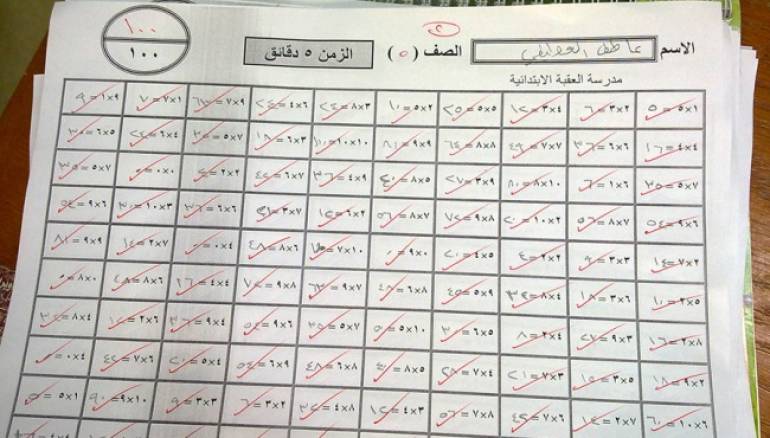 ١٠٠
١٠٠
٢
الاسم عاطف الصف (٥) الزمن ٥ دقائق
مدرسة العقبة الابتدائية
١×٥ = ٥ ٢×٣ = ٦ ٤×٣ = ١٢ ٥×٥ = ٢٥ ٢×٥ = ١٠ ٣×٨ = ٢٤ ٦×٤ = ٢٤ ٩×٧ = ٦٣ ١×٧ = ٧ ٩×١ = ٩
٤×٤ = ١٦ ٦×٦ = ٣٦ ٧×٧ = ٤٩ ٨×٨ = ٦٤ ٩×٩ = ٨١ ١٠×١٠ = ١٠٠ ٣×٦ = ١٨ ٧×٥ = ٣٥ ٤×٦ = ٢٤ ٥×٦ = ٣٠
٧×٥ = ٣٥ ٦×١ = ٦ ١٠×٨ = ٨٠ ٩×٣ = ٢٧ ٥×٨ = ٤٠ ٩×٤ = ٣٦ ٧×٦ = ٤٢ ٢×٢ = ٤ ٠×٠ = ٠ ٧×٥ = ٣٥
٦×٩ = ٥٤ ٧×٨ = ٥٦ ٢×١٠ = ٢٠ ٨×٩ = ٧٢ ٧×٨ = ٥٦ ٢×٦ = ١٢ ٧×٣ = ٢١ ٦×٦ = ٣٦ ٣×١٠ = ٣٠ ٦×٩ = ٥٤
٢×٧ = ١٤ ٣×٣ = ٩ ٢×٢ = ٤ ٤×٥ = ٢٠ ٠×٩ = ٠ ١٠×٧ = ٧٠ ٦×٨ = ٤٨ ٤×٠ = ٠ ٧×٢ = ١٤ ٩×٩ = ٨١
٥×٢ = ١٠ ٦×٣ = ١٨ ٤×٨ = ٣٢ ٩×٥ = ٤٥ ٨×٦ = ٤٨ ٧×٩ = ٦٣ ٨×٩ = ٧٢ ٤×٤ = ١٦ ٦×٨ = ٤٨ ٠×٨ = ٠
٨×٢ = ١٦ ٣×٩ = ٢٧ ٤×٢ = ٨ ٥×٦ = ٣٠ ١٠×٥ = ٥٠ ٧×٥ = ٣٥ ٦×٩ = ٥٤ ٤×٩ = ٣٦ ٦×٢ = ١٢ ٤×٨ = ٣٢
٢×٩ = ١٨ ٥×٣ = ١٥ ٣×٧ = ٢١ ٤×٧ = ٢٨ ٥×٨ = ٤٠ ٦×٨ = ٤٨ ٩×٦ = ٥٤ ٤×٥ = ٢٠ ٦×٧ = ٤٢ ٤×٠ = ٠
١٠×٦ = ٦٠ ٧×٢ = ١٤ ٦×٧ = ٤٢ ٨×٧ = ٥٦ ٣×٤ = ١٢ ٨×٤ = ٣٢ ٢×٣ = ٦ ٣×٣ = ٩ ١٠×٩ = ٩٠ ١×٥ = ٥